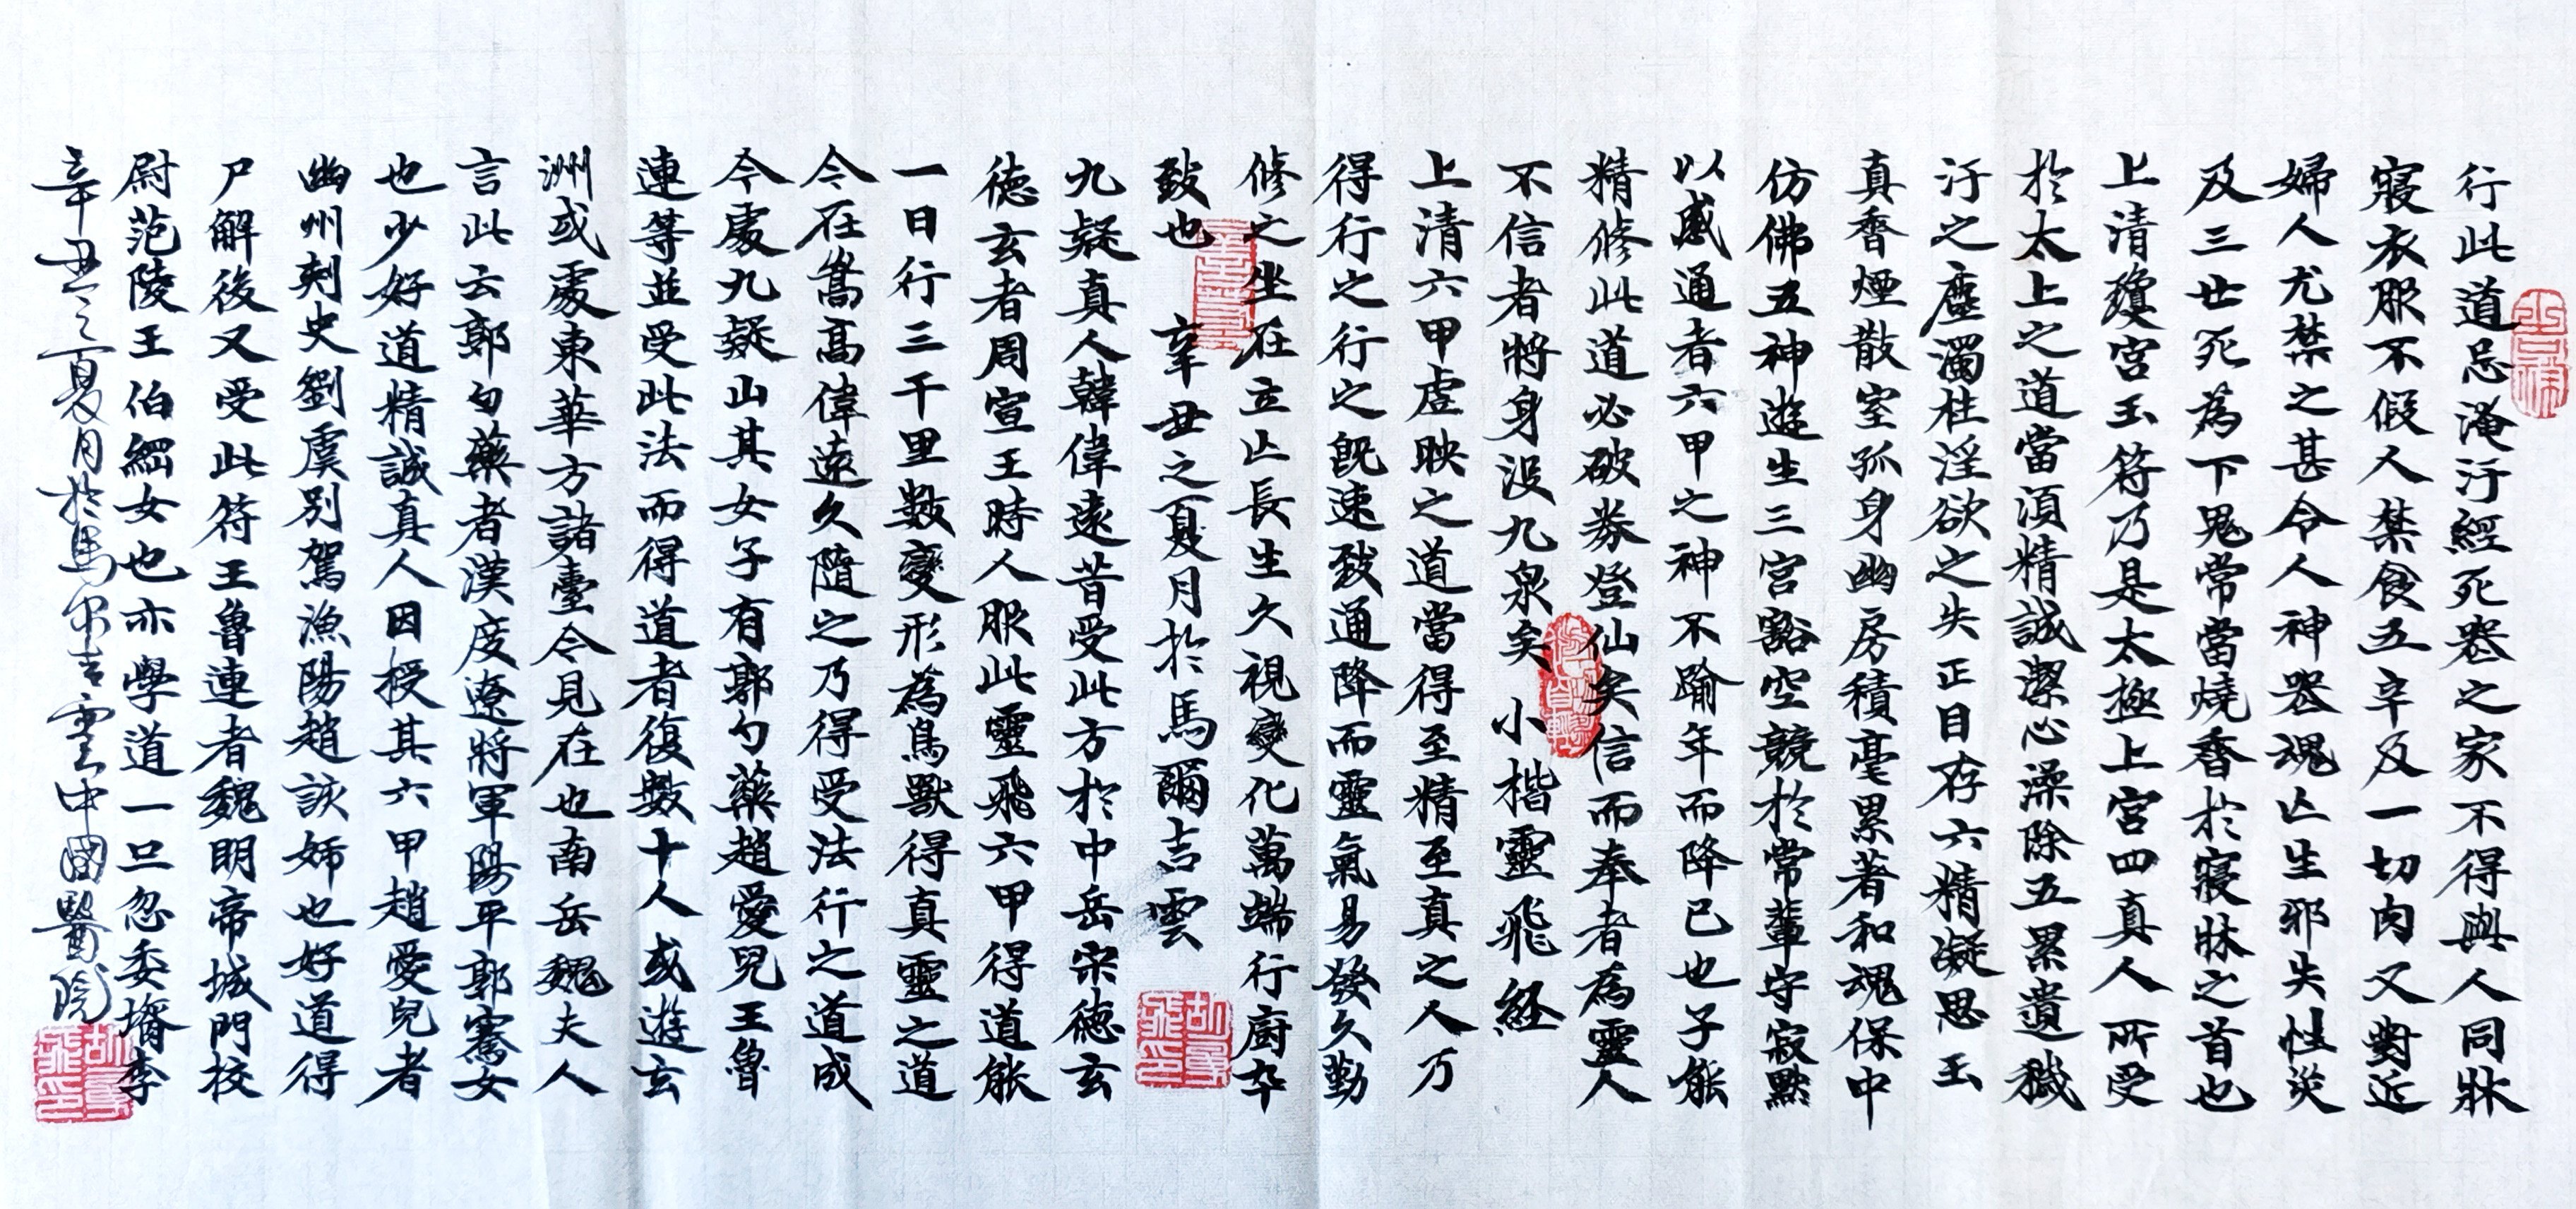 行此道忌淹汙經死喪之家不得與人同牀
寢衣服不假人禁食五辛及一切肉又對近
婦人尤禁之甚令人神喪魂亡生邪失性災
及三世死為下鬼常當燒香於寢牀之首也
上清瓊宮玉符乃是太極上宮四真人所受
於太上之道當須精誠潔心澡除五累遺穢
汙之塵濁杜淫欲之失正目存六精凝思玉
真香煙散室孤身幽房積毫累著和魂保中
仿佛五神遊生三宮豁空競於常輩守寂默
以感通者六甲之神不踰年而降已也子能
精修此道必破券登仙矣信而奉者為靈人
不信者將身沒九泉矣 小楷靈飛経
上清六甲虛映之道當得至精至真之人乃
得行之行之既速致通降而靈氣易發久勤
修之坐在立亡長生久視變化萬端行廚卒
致也 辛丑之夏月於馬爾吉雲
九疑真人韓偉遠昔受此方於中岳宋德玄
德玄者周宣王時人服此靈飛六甲得道能
一日行三千里數變形為鳥獸得真靈之道
今在嵩高偉遠久隨之乃得受法行之道成
今處九疑山其女子有郭勺藥趙愛兒王魯
連等並受此法而得道者復數十人或遊玄
洲或處東華方諸臺今見在也南岳魏夫人
言此云郭勺藥者漢度遼將軍陽平郭騫女
也少好道精誠真人因授其六甲趙愛兒者
幽州刺史劉虞別駕漁陽趙該姊也好道得
尸解後又受此符王魯連者魏明帝城門校
尉范陵王伯綱女也亦學道一旦忽委壻李
辛丑之夏月於馬尔吉雲中國醫院